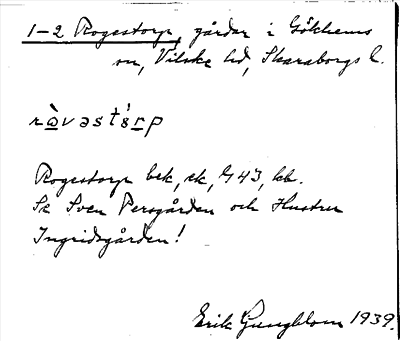 1-2 Rogestorp, gårdar i Gökhems
sn, Vilske hd, Skaraborgs l.
ràvəst'ɵrp
Rogestorp bek, ek, G 43, kb.
Se Sven Persgården och Hustru
Ingridsgården!
Erik Ljungblom 1939.